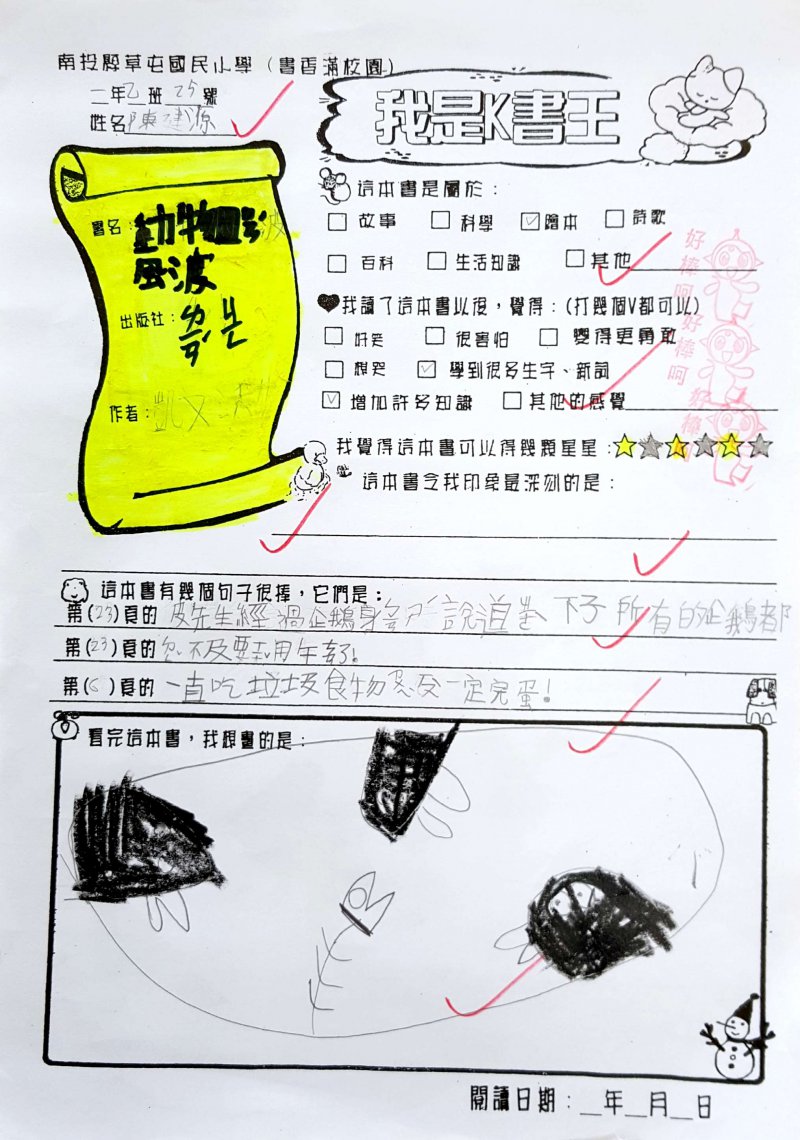 南投縣草屯國民小學（書香滿校園）
二年乙班25號
姓名陳建源
我是K書王
書名：動物園 風波
出版社：
作者：凱文
這本書是屬於：
□故事 □科學 ☑繪本 □詩歌
□百科 □生活知識 □其他
我讀了這本書以後，覺得：(打幾個V都可以)
□好笑 □很害怕 □變得更勇敢
□想哭 ☑學到很多生字、新詞
☑增加許多知識 □其他的感覺
我覺得這本書可以得幾顆星星：☆★☆★☆★
這本書令我印象最深刻的是：
好棒呵
好棒呵
好棒
這本書有幾個句子很棒，它們是：
第(23)頁的 皮先生經過企鵝身 說道 下子所有的企鵝都
第(23)頁的 不及要 用 年 了!
第(6)頁的 一直吃垃圾食物 一定完蛋!
看完這本書，我想畫的是：
閱讀日期：__年__月__日